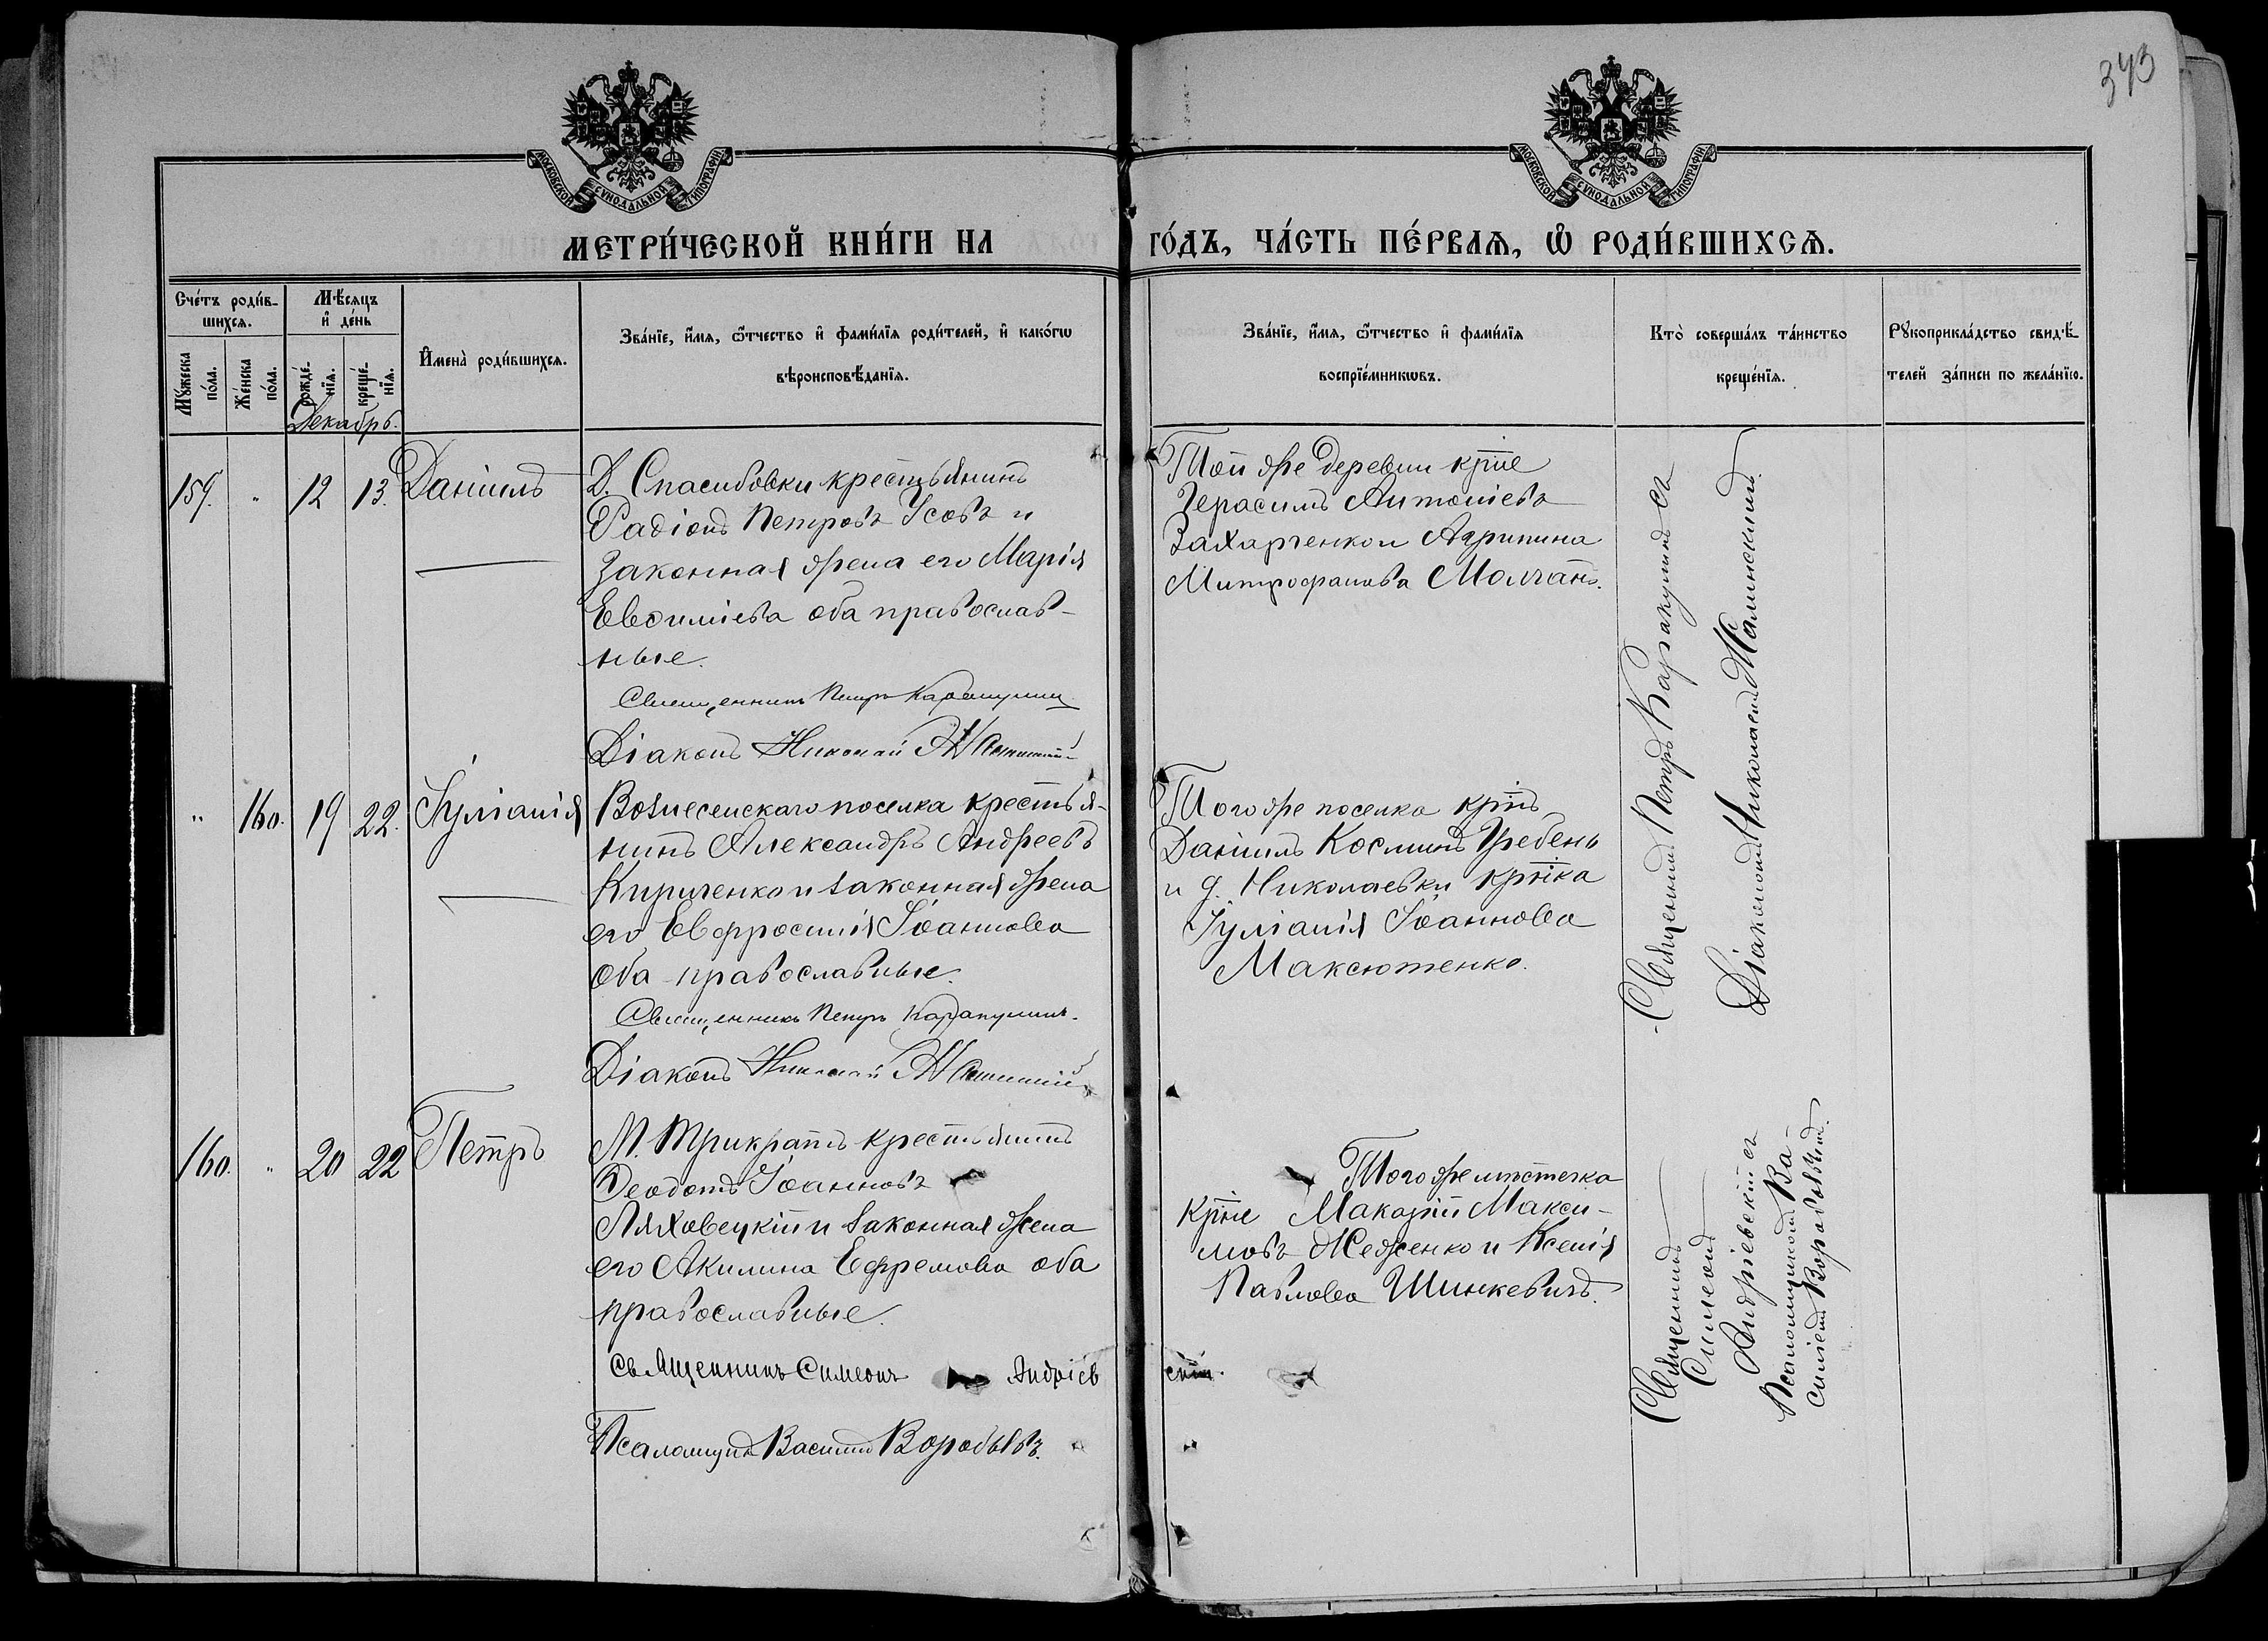 343
МОСКОВСКОЙ СѴНОДАЛЬНОЙ ТИПОГРАФІИ
МОСКОВСКОЙ СѴНОДАЛЬНОЙ ТИПОГРАФІИ
МЕТРИ́ЧЕСКОЙ КНИ́ГИ НА ГО́ДЪ, ЧА́СТЬ ПЕ́РВАѦ, Ѡ РОДИ́ВШИХСѦ.
Сче́тъ роди́в-
шихсѧ.
Мꙋ́жеска
по́ла.
Же́нска
по́ла.
Мѣ́сѧцъ
и҆ де́нь
рожде́-
нїѧ.
креще́-
нїѧ.
И҆мена̀ роди́вшихсѧ.
Зва́нїе, и҆́мѧ, ѻ҆́тчество и҆ фами́лїѧ роди́телей, и҆ како́гѡ
вѣроисповѣ́данїѧ.
Зва́нїе, и҆́мѧ, ѻ҆́тчество и҆ фами́лїѧ
воспрїе́мникѡвъ.
Кто̀ соверша́лъ та́инство
креще́нїѧ.
Рꙋкоприкла́дство свидѣ́-
телей за́писи по жела́нїю.
Декабрь.
159. " 12 13. Даніилъ
Д. Спасибовки крестьянинъ
Радіонъ Петровъ Усовъ и
законная жена его Марія
Евѳиміева оба православ-
ные.
Священникъ Петръ Каракулинъ
Діаконъ Николай
Той же деревни кр҃не
Герасимъ Антоніевъ
Захарченко и Агрипина
Митрофанова Молчан.
Священникъ Петръ Каракулинъ съ
Діакономъ Николаемъ
" 160. 19 22. Іуліанія
Вознесенскаго поселка крестья-
нинъ Александръ Андреевъ
Кириченко и законная жена
его Евфросинія Іоаннова
оба православные.
Священникъ Петръ Каракулинъ.
Діаконъ Николай
Того же поселка кр҃нъ
Даніилъ Косминъ Гребень
и д. Николаевки кр҃нка
Іуліанія Іоаннова
Максютенко.
160. " 20 22 Петръ
М. Трикратъ крестьянинъ
Ѳеодотъ Іоанновъ
Ляховецкій и законная жена
его Акилина Ефремова оба
православные.
Священникъ Симеонъ Андріевскій.
Псаломщикъ Василій Воробьевъ.
Того же мѣстечка
кр҃не Макарій Макси-
мовъ Жеженко и Ксенія
Павлова Шинкевичъ.
Священникъ
Симеонъ
Андріевскій съ
Псаломщикомъ Ва-
силіемъ Воробьевымъ.